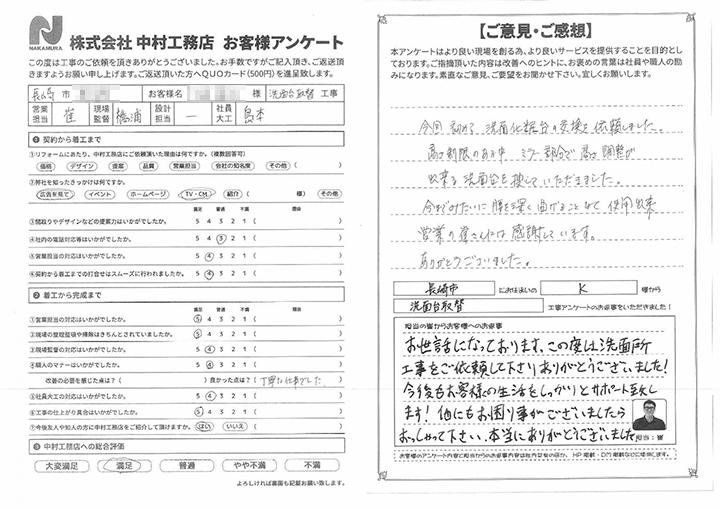 NAKAMURA
株式会社 中村工務店 お客様アンケート
この度は工事のご依頼を頂きありがとうございました。お手数ですがご記入頂き、ご返送頂
きますようお願い申し上げます。ご返送頂いた方へQUOカード(500円)を進呈致します。
長崎 市 お客様名 様 洗面台取替 工事
営業担当 崔 現場監督 橋浦 設計担当 ー 社員大工 島本
❶ 契約から着工まで
①リフォームにあたり、中村工務店にご依頼頂いた理由は何ですか。(複数回答可)
価格 デザイン 提案 品質 営業担当 会社の知名度 その他 ( )
②弊社を知ったきっかけは何ですか。
広告を見て イベント ホームページ TV・CM 紹介 ( 様) その他
満足 普通 不満 理由
③間取りやデザインなどの提案力はいかがでしたか。 5 4 3 2 1 ( )
④社内の電話対応等はいかがでしたか。 5 4 3 2 1 ( )
⑤営業担当の対応はいかがでしたか。 5 4 3 2 1 ( )
⑥契約から着工までの打合せはスムーズに行われましたか。 5 4 3 2 1 ( )
❷ 着工から完成まで
満足 普通 不満 理由
①営業担当の対応はいかがでしたか。 5 4 3 2 1 ( )
②現場の整理整頓や掃除はきちんとされていましたか。 5 4 3 2 1 ( )
③現場監督の対応はいかがでしたか。 5 4 3 2 1 ( )
④職人のマナーはいかがでしたか。 5 4 3 2 1 ( )
改善の必要を感じた点は?( ) 良かった点は?( 丁寧な仕事でした )
⑤社員大工の対応はいかがでしたか。 5 4 3 2 1 ( )
⑥工事の仕上がり具合はいかがでしたか。 5 4 3 2 1 ( )
⑦今後友人や知人の方に中村工務店をご紹介して頂けますか。 はい いいえ ( )
❸ 中村工務店への総合評価
大変満足 満足 普通 やや不満 不満
よろしければ裏面も記載お願い致します。
【ご意見・ご感想】
本アンケートはより良い現場を創る為、より良いサービスを提供することを目的とし
ております。ご指摘頂いた内容は改善へのヒントに、お褒めの言葉は社員や職人の励
みになります。素直なご意見、ご要望をお聞かせ下さい。宜しくお願いします。
今回初めて、洗面化粧台の交換を依頼しました。
高さ制限のある中 ミラー部分で高さ調整が
出来る洗面台を探していただきました。
今までみたいに腰を深く曲げることなく使用出来
営業の崔さんには感謝しています。
ありがとうございました。
長崎市 にお住まいの K 様から
洗面台取替 工事アンケートのお返事をいただきました!
担当の崔からお客様へのお返事
お世話になっております。この度は洗面所
工事をご依頼して下さりありがとうございました!
今後もお客様の生活をしっかりとサポート致し
ます!他にもお困り事がございましたら
おっしゃって下さい、本当にありがとうございました
担当:崔
お客様のアンケート内容と担当からのお返事内容は社内공有のほか、HP掲載・DM掲載などに使用します。